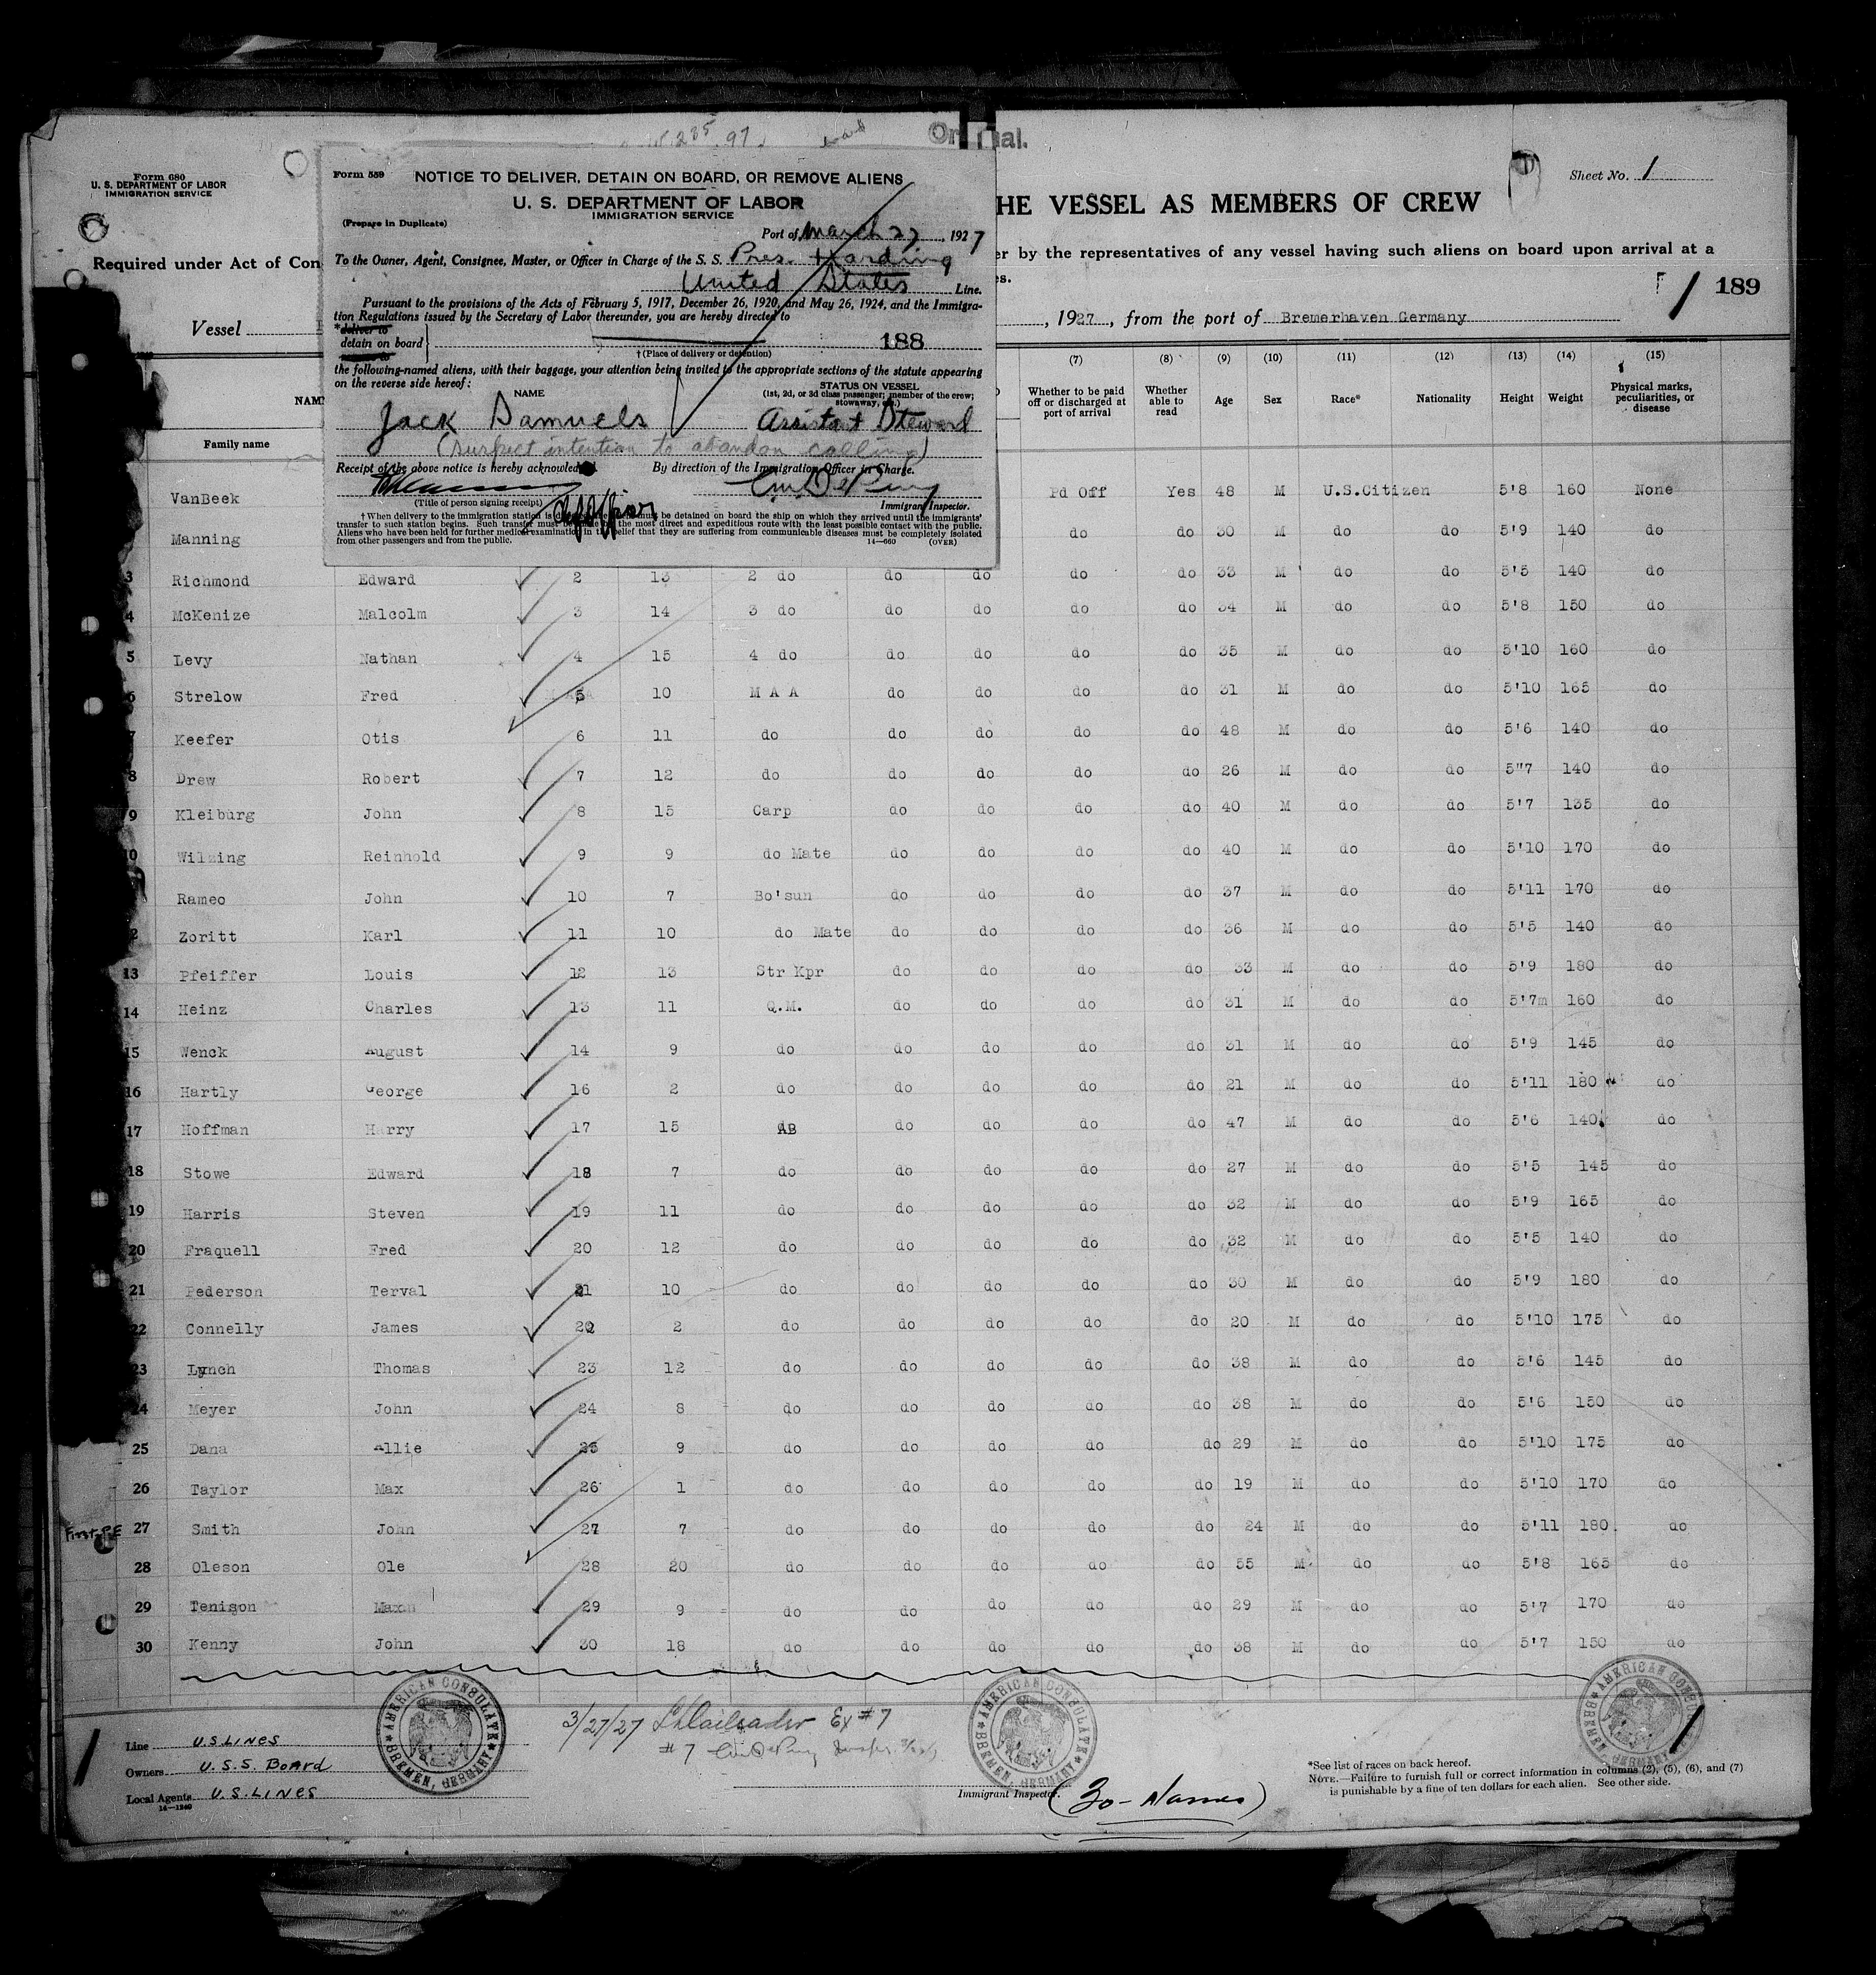 Original.
Form 680
U. S. DEPARTMENT OF LABOR
IMMIGRATION SERVICE
Sheet No. 1
HE VESSEL AS MEMBERS OF CREW
Required under Act of Con
er by the representatives of any vessel having such aliens on board upon arrival at a
es.
189
Vessel
, 1927, from the port of Bremerhaven Germany
Form 559
NOTICE TO DELIVER, DETAIN ON BOARD, OR REMOVE ALIENS
U. S. DEPARTMENT OF LABOR
IMMIGRATION SERVICE
(Prepare in Duplicate)
Port of March 27, 1927
To the Owner, Agent, Consignee, Master, or Officer in Charge of the S. S. Pres. Harding
United States Line.
Pursuant to the provisions of the Acts of February 5, 1917, December 26, 1920, and May 26, 1924, and the Immigra-
tion Regulations issued by the Secretary of Labor thereunder, you are hereby directed to
*deliver to
detain on board
188
† (Place of delivery or detention)
the following-named aliens, with their baggage, your attention being invited to the appropriate sections of the statute appearing
on the reverse side hereof:
NAME
STATUS ON VESSEL
(1st, 2d, or 3d class passenger; member of the crew;
stowaway, etc.)
Jack Samuels Assistant Steward
(Suspect intention to abandon calling)
Receipt of the above notice is hereby acknowledged By direction of the Immigration Officer in Charge.
(Title of person signing receipt)
Immigrant Inspector.
† When delivery to the immigration station is must be detained on board the ship on which they arrived until the immigrants'
transfer to such station begins. Such transfer must be the most direct and expeditious route with the least possible contact with the public.
Aliens who have been held for further medical examination in the belief that they are suffering from communicable diseases must be completely isolated
from other passengers and from the public.
14—660 (OVER)
(7) (8) (9) (10) (11) (12) (13) (14) (15)
Whether to be paid off or discharged at port of arrival Whether able to read Age Sex Race* Nationality Height Weight Physical marks, peculiarities, or disease
NAM
Family name
VanBeek Pd Off Yes 48 M U.S.Citizen 5'8 160 None
Manning do do 30 M do do 5'9 140 do
3 Richmond Edward 2 13 2 do do do do do 33 M do do 5'5 140 do
4 McKenize Malcolm 3 14 3 do do do do do 34 M do do 5'8 150 do
5 Levy Nathan 4 15 4 do do do do do 35 M do do 5'10 160 do
6 Strelow Fred 5 10 M A A do do do do 31 M do do 5'10 165 do
7 Keefer Otis 6 11 do do do do do 48 M do do 5'6 140 do
8 Drew Robert 7 12 do do do do do 26 M do do 5"7 140 do
9 Kleiburg John 8 15 Carp do do do do 40 M do do 5'7 135 do
0 Wilzing Reinhold 9 9 do Mate do do do do 40 M do do 5'10 170 do
Rameo John 10 7 Bo'sun do do do do 37 M do do 5'11 170 do
2 Zoritt Karl 11 10 do Mate do do do do 36 M do do 5'5 140 do
13 Pfeiffer Louis 12 13 Str Kpr do do do do 33 M do do 5'9 180 do
14 Heinz Charles 13 11 Q.M. do do do do 31 M do do 5'7m 160 do
15 Wenck August 14 9 do do do do do 31 M do do 5'9 145 do
16 Hartly George 16 2 do do do do do 21 M do do 5'11 180 do
17 Hoffman Harry 17 15 AB do do do do 47 M do do 5'6 140 do
18 Stowe Edward 18 7 do do do do do 27 M do do 5'5 145 do
19 Harris Steven 19 11 do do do do do 32 M do do 5'9 165 do
20 Fraquell Fred 20 12 do do do do do 32 M do do 5'5 140 do
21 Pederson Terval 21 10 do do do do do 30 M do do 5'9 180 do
22 Connelly James 22 2 do do do do do 20 M do do 5'10 175 do
23 Lynch Thomas 23 12 do do do do do 38 M do do 5'6 145 do
24 Meyer John 24 8 do do do do do 38 M do do 5'6 150 do
25 Dana Allie 25 9 do do do do do 29 M do do 5'10 175 do
26 Taylor Max 26 1 do do do do do 19 M do do 5'10 170 do
27 Smith John 27 7 do do do do do 24 M do do 5'11 180 do
28 Oleson Ole 28 20 do do do do do 55 M do do 5'8 165 do
29 Tenison 29 9 do do do do do 29 M do do 5'7 170 do
30 Kenny John 30 18 do do do do do 38 M do do 5'7 150 do
AMERICAN CONSULATE BREMEN, GERMANY
AMERICAN CONSULATE BREMEN, GERMANY
AMERICAN CONSULATE BREMEN, GERMANY
Line U.S. LINES
Owners U.S.S. BOARD
Local Agents U.S. LINES
14—1240
3/27/27 Ex #7
#7
Immigrant Inspector.
(30 - Names)
*See list of races on back hereof.
NOTE.—Failure to furnish full or correct information in columns (2), (5), (6), and (7)
is punishable by a fine of ten dollars for each alien. See other side.